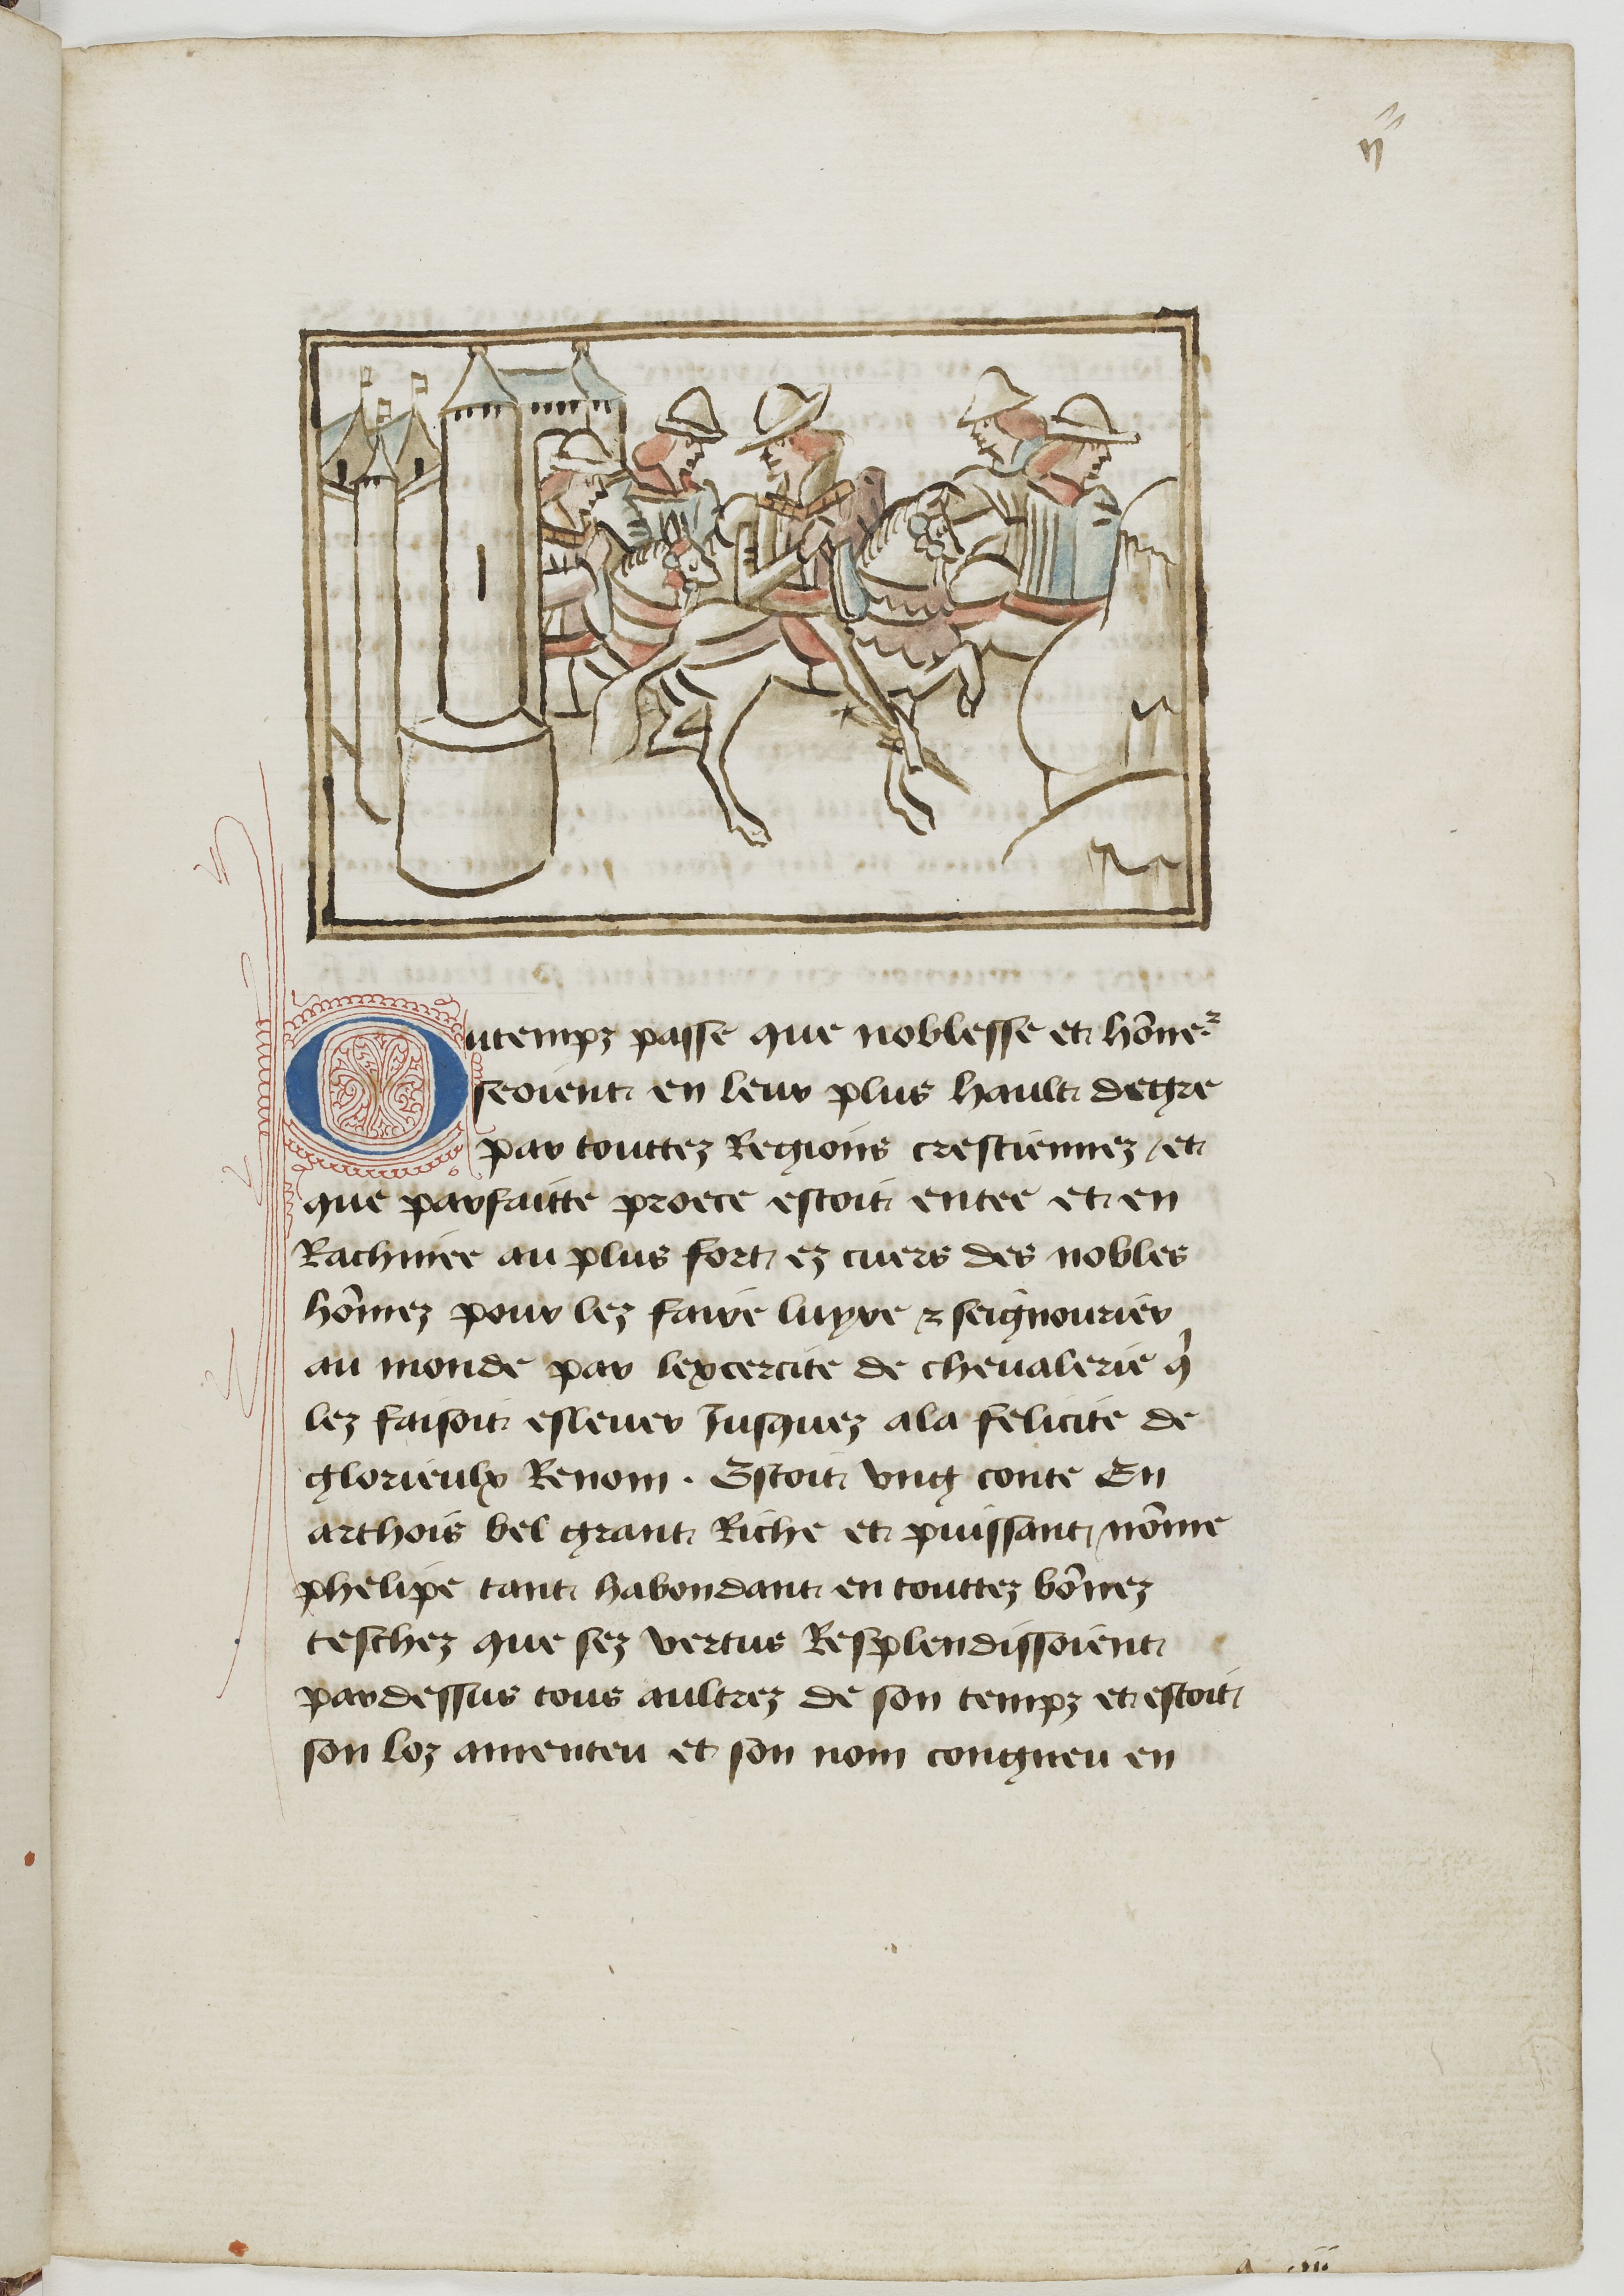 ij
Outempz passe que noblesse et hōneᷣ
seoient en leur plus hault degre
par touttez Regions crestiennez / et
que parfaitte proece estoit entee et en
Rachinee au plus fort ez cuers des nobles
hōmez pour lez faire luyre ⁊ seignourier
au monde par lexcercite de cheualerie qͥ
lez faisoit esleuer Jusquez ala felicite de
glorieulx Renom . Estoit vng conte En
arthois bel grant Riche et puissant / nōme
phelipe tant habondant en touttez bōnez
teschez que sez vertus Resplendissoient
pardessus tous aultrez de son tempz et estoit
son loz amenteu et son nom congneu en